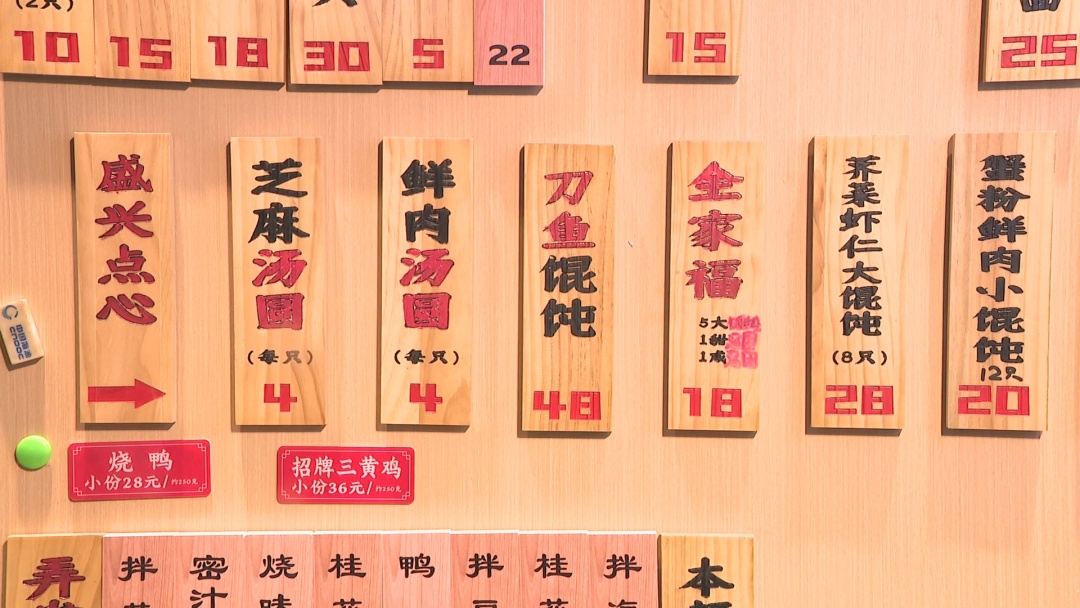 (2只)
10
15
18
30
5
22
15
面
25
盛兴点心
芝麻汤圆
(每只)
4
鲜肉汤圆
(每只)
4
刀鱼馄饨
48
全家福
5大馄饨
1甜汤圆
1咸汤圆
18
荠菜虾仁大馄饨
(8只)
28
蟹粉鲜肉小馄饨
12只
20
烧鸭
小份28元/约250克
招牌三黄鸡
小份36元/约250克
弄
拌
密汁
烧味
桂花
鸭
拌豆
桂花
拌海
本